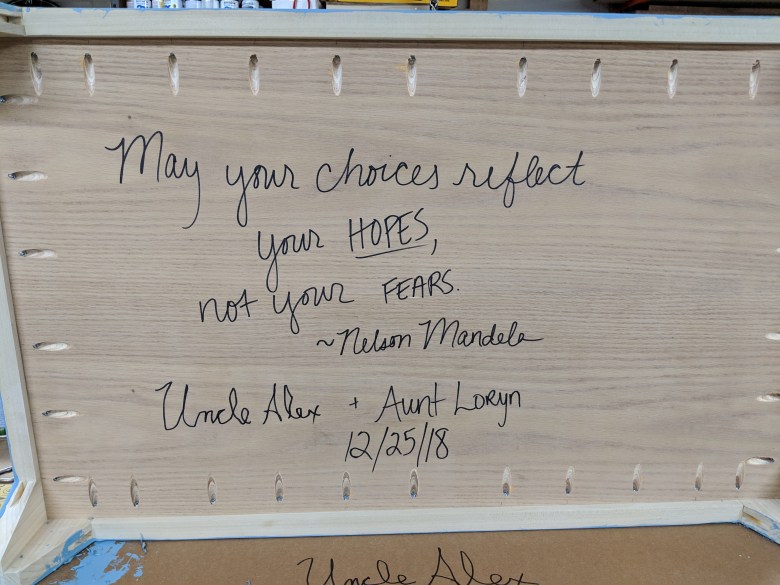 May your choices reflect
your HOPES,
not your FEARS.
~Nelson Mandela
Uncle Alex + Aunt Loryn
12/25/18
Uncle Alex